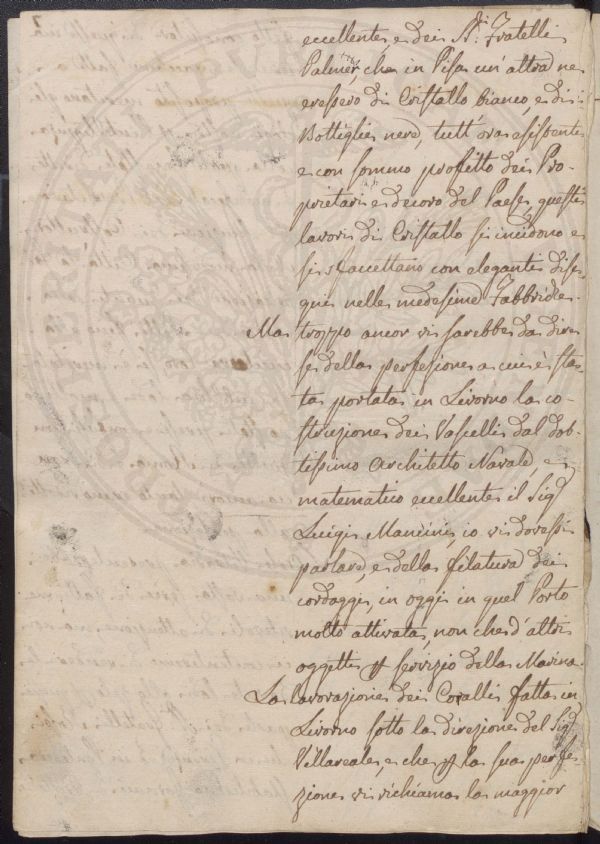 eccellente, e dei S.ri Fratelli
Palmer, che in Pisa un' altra ne
eressero di Cristallo bianco, e di
Bottiglie nere, tutt' ora esistente
e con sommo profitto dei Pro-
prietari e decoro del Paese, questi
lavori di Cristallo si incidono e
si sfaccettano con eleganti dise-
gni nelle medesime Fabbriche.
Ma troppo ancor vi sarebbe da dire
se della perfezione a cui è sta-
ta portata in Livorno la co-
struzione dei Vascelli dal dot-
tissimo Architetto Navale, e
matematico eccellente il Sig.
Luigi Mancini, io vi dovessi
parlare, e della filatura dei
cordaggi, in oggi in quel Porto
molto attivata, non che d' altri
oggetti servizio della Marina.
La lavorazione dei Coralli fatta in
Livorno sotto la direzione del Sig.
Villareale, e che la sua perfe-
zione vi richiama la maggior